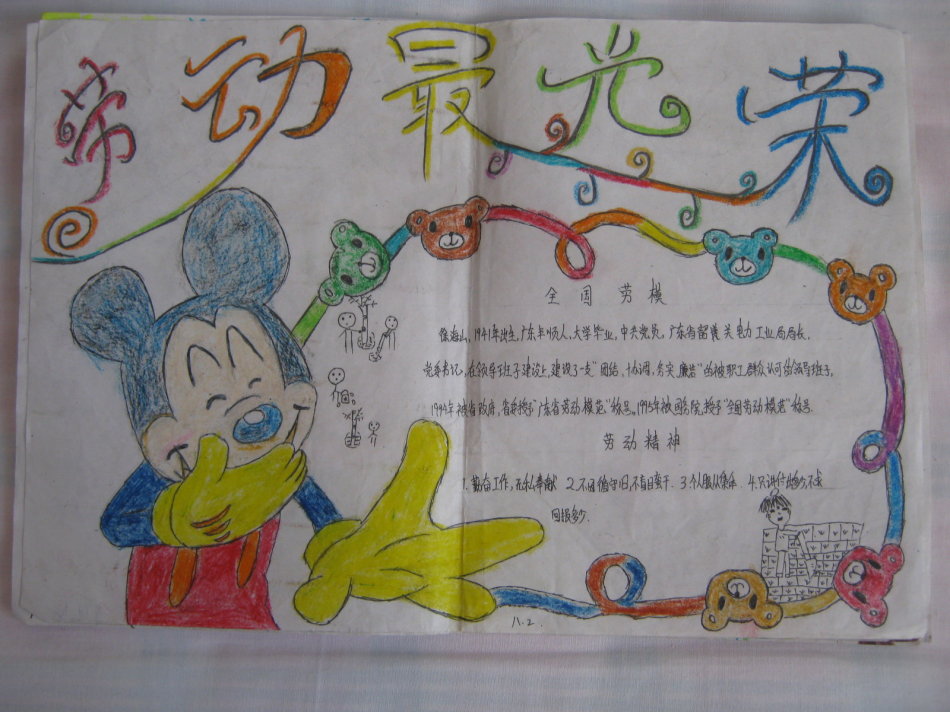 劳动最光荣
全国劳模
徐海山,1941年出生,广东丰顺人,大学毕业,中共党员,广东省韶关电力工业局局长,
党委书记,在领导班子建设上,建设了一支"团结、协调、务实、廉洁"的被职工群众认可的领导班子,
1994年被省政府,省委授予"广东省劳动模范"称号,1995年被国务院,授予"全国劳动模范"称号.
劳动精神
1.勤奋工作,无私奉献 2.不因循守旧,不盲目蛮干. 3.个人服从集体 4.只讲付出多少,不求
回报多少.
11.2.